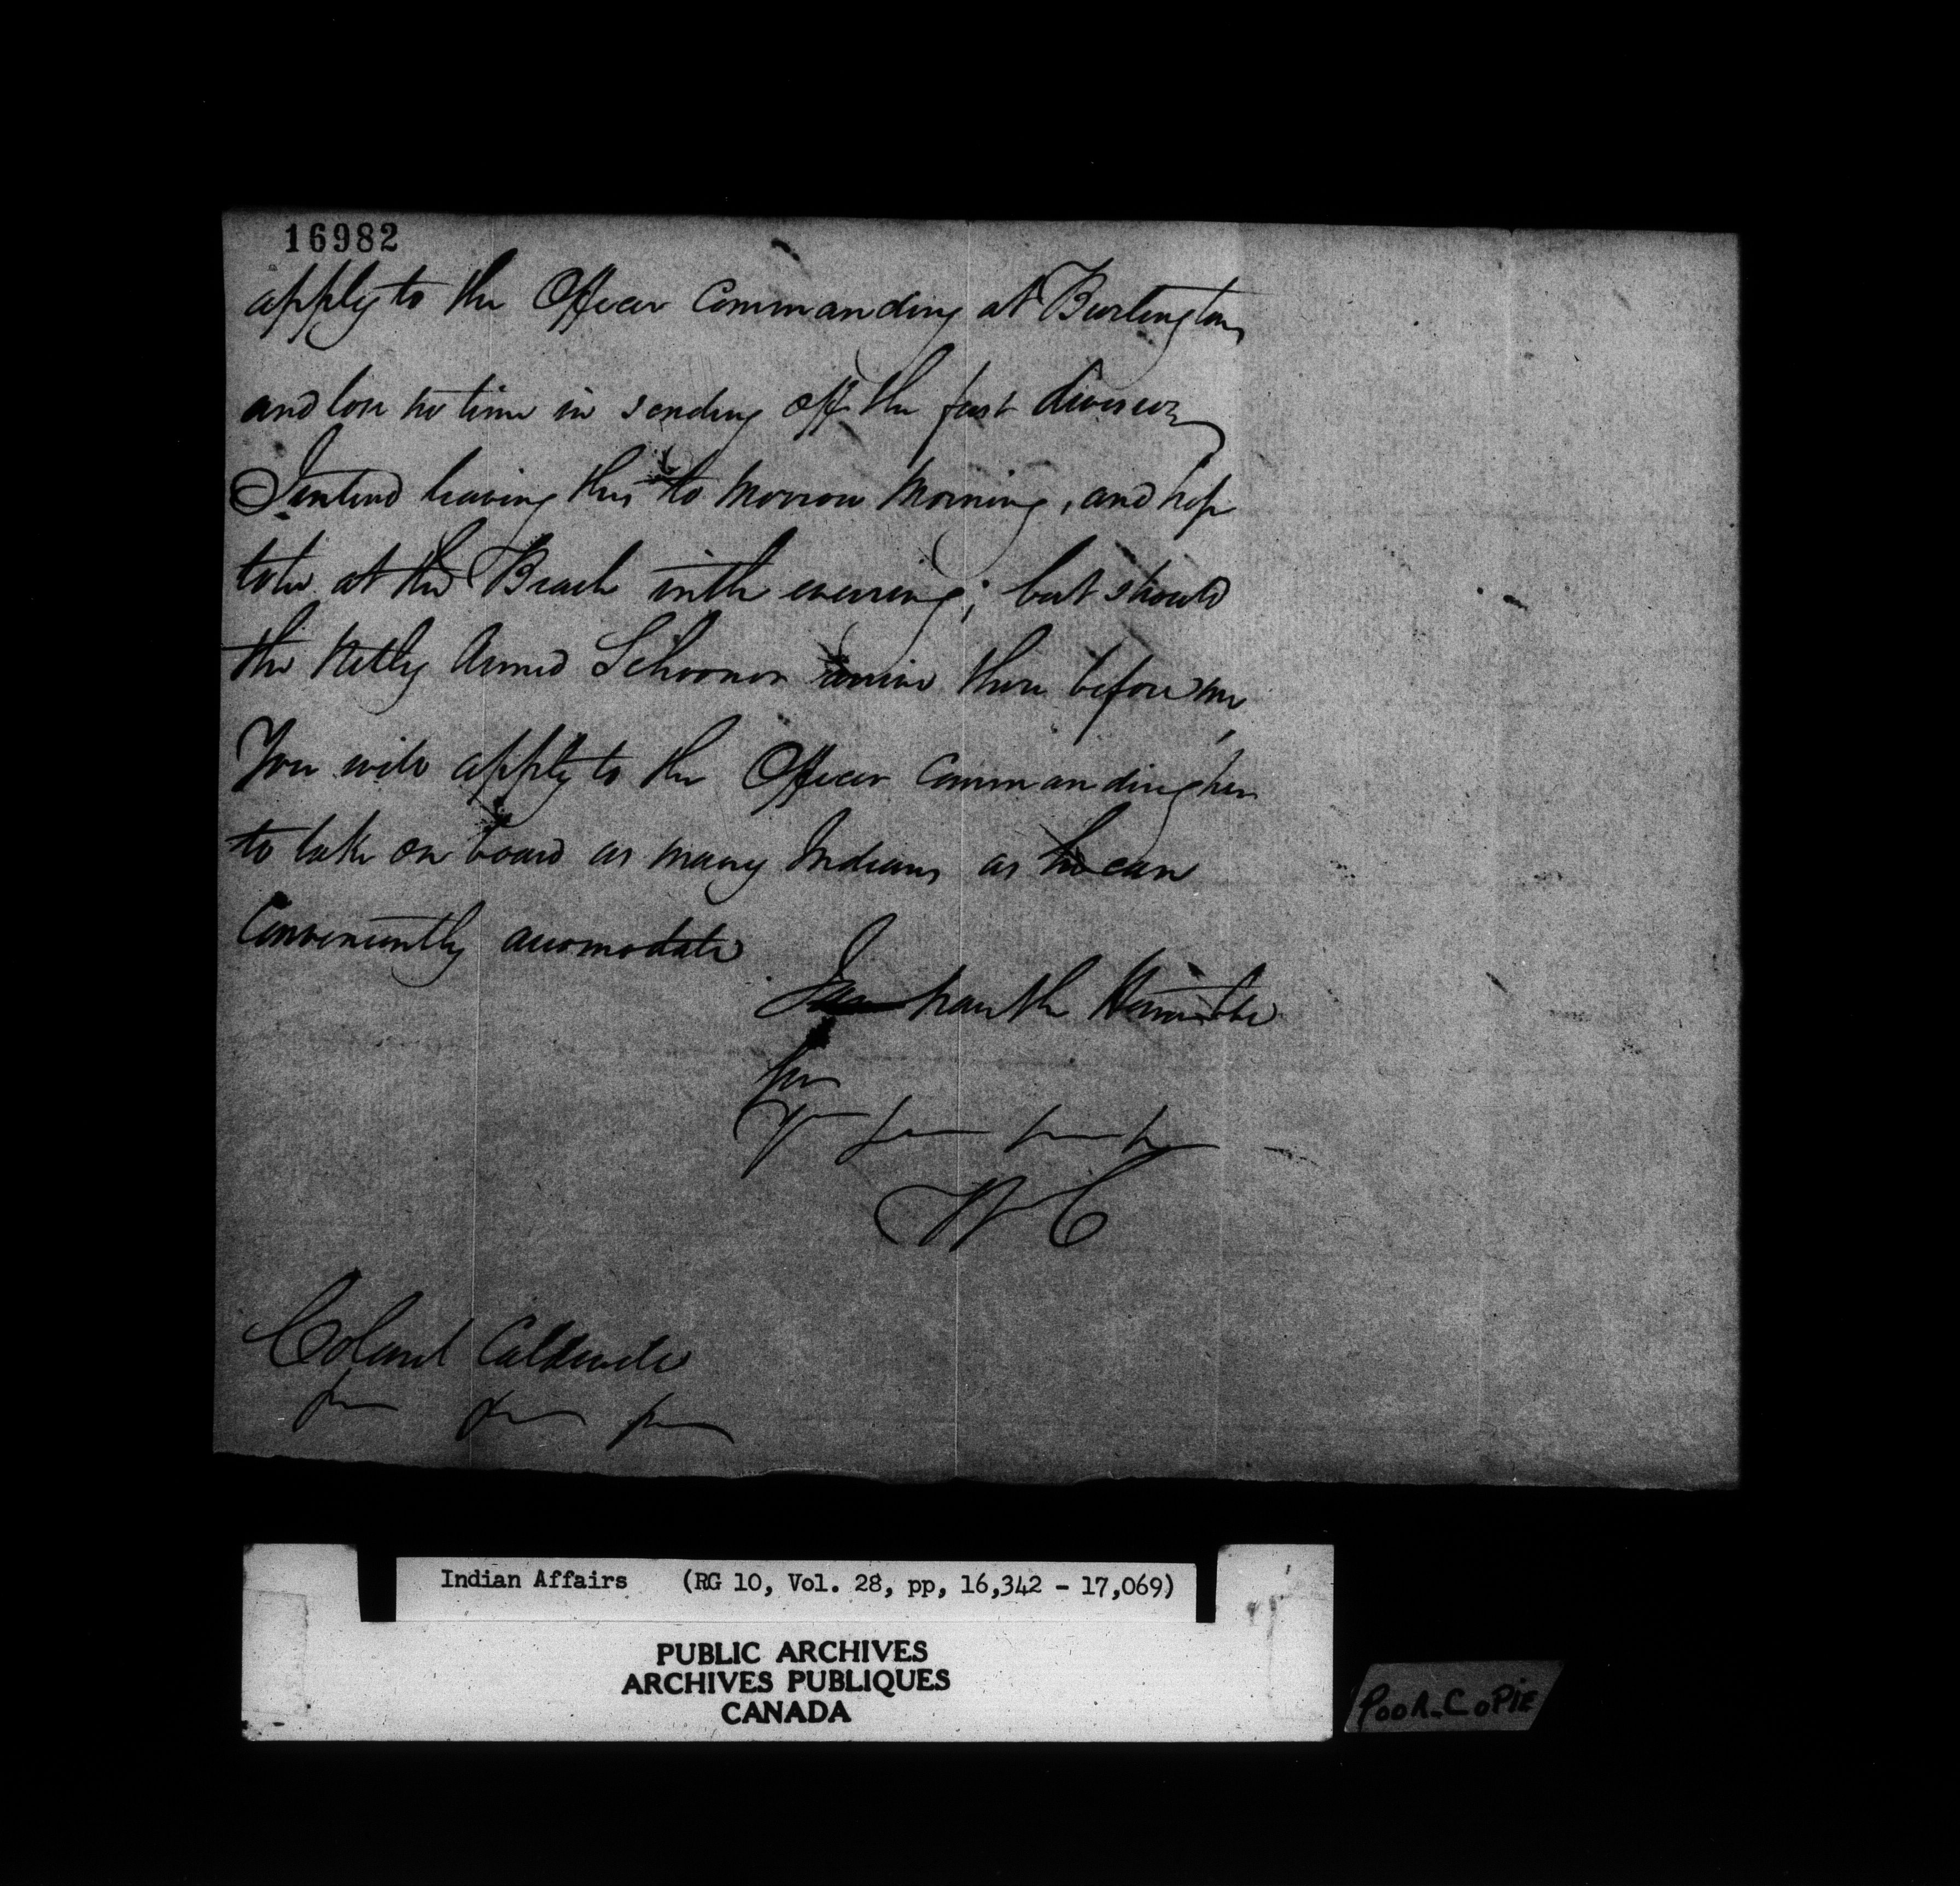 16982
apply to the Officer Commanding at Burlington
and lose no time in sending off the first division
I intend leaving this to morrow Morning, and hope
to be at the Beach in the evening; but should
the Netly Armed Schooner arrive there before me,
You will apply to the Officer Commanding her
to take on board as many Indians as he can
Conveniently accomodate
I have the Honor to be
W C
Colonel Caldwell
Indian Affairs (RG 10, Vol. 28, pp, 16,342 - 17,069)
PUBLIC ARCHIVES
ARCHIVES PUBLIQUES
CANADA
POOR-COPIE